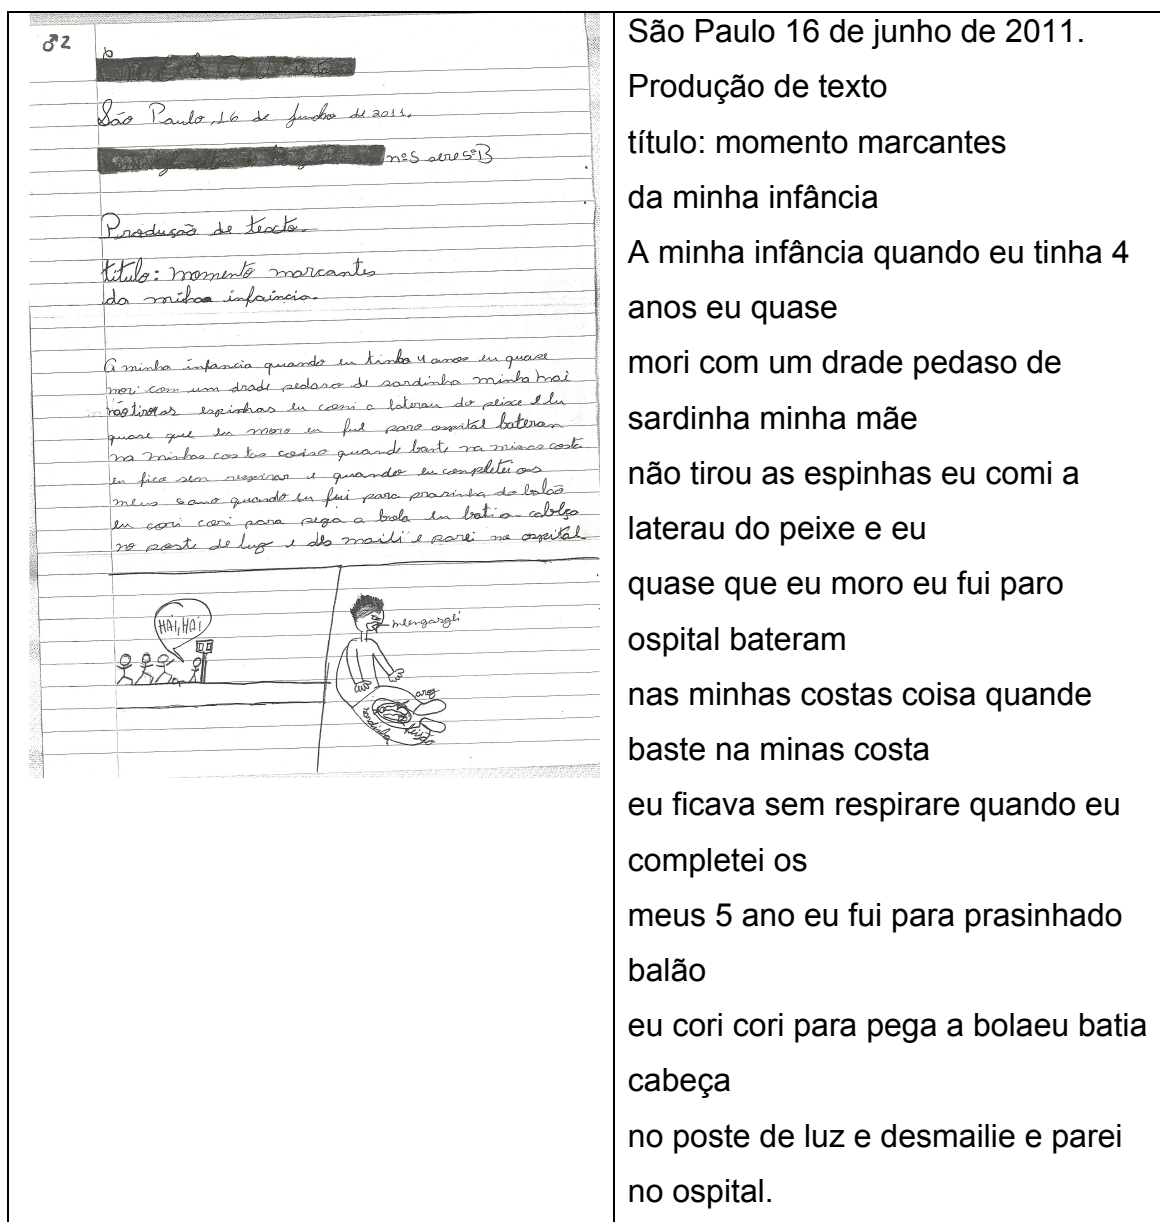 ♂2
São Paulo, 16 de junho de 2011.
nº5 serie 5ªB
Produsão de texto.
titulo: momento marcantes
da minha infaincia.
A minha infancia quando eu tinha 4 anos eu quase
mori com um drade pedaso de sardinha minha mai
não tiro as espinhas eu comi a laterau do peixe e eu
quase que eu moro eu fui paro ospital bateram
na minhas costas coiso quande baste na minas costa
eu fica sem respirar e quando eu completei os
meus 5 ano quando eu fui para prasinha do balão
eu cori cori para pega a bola eu bati a cabeça
no poste de luz e des maili e parei no ospital
HAI, HAI
mengasgei
aroz
sardinha
São Paulo 16 de junho de 2011.
Produção de texto
título: momento marcantes
da minha infância
A minha infância quando eu tinha 4
anos eu quase
mori com um drade pedaso de
sardinha minha mãe
não tirou as espinhas eu comi a
laterau do peixe e eu
quase que eu moro eu fui paro
ospital bateram
nas minhas costas coisa quande
baste na minas costa
eu ficava sem respirare quando eu
completei os
meus 5 ano eu fui para prasinhado
balão
eu cori cori para pega a bolaeu batia
cabeça
no poste de luz e desmailie e parei
no ospital.